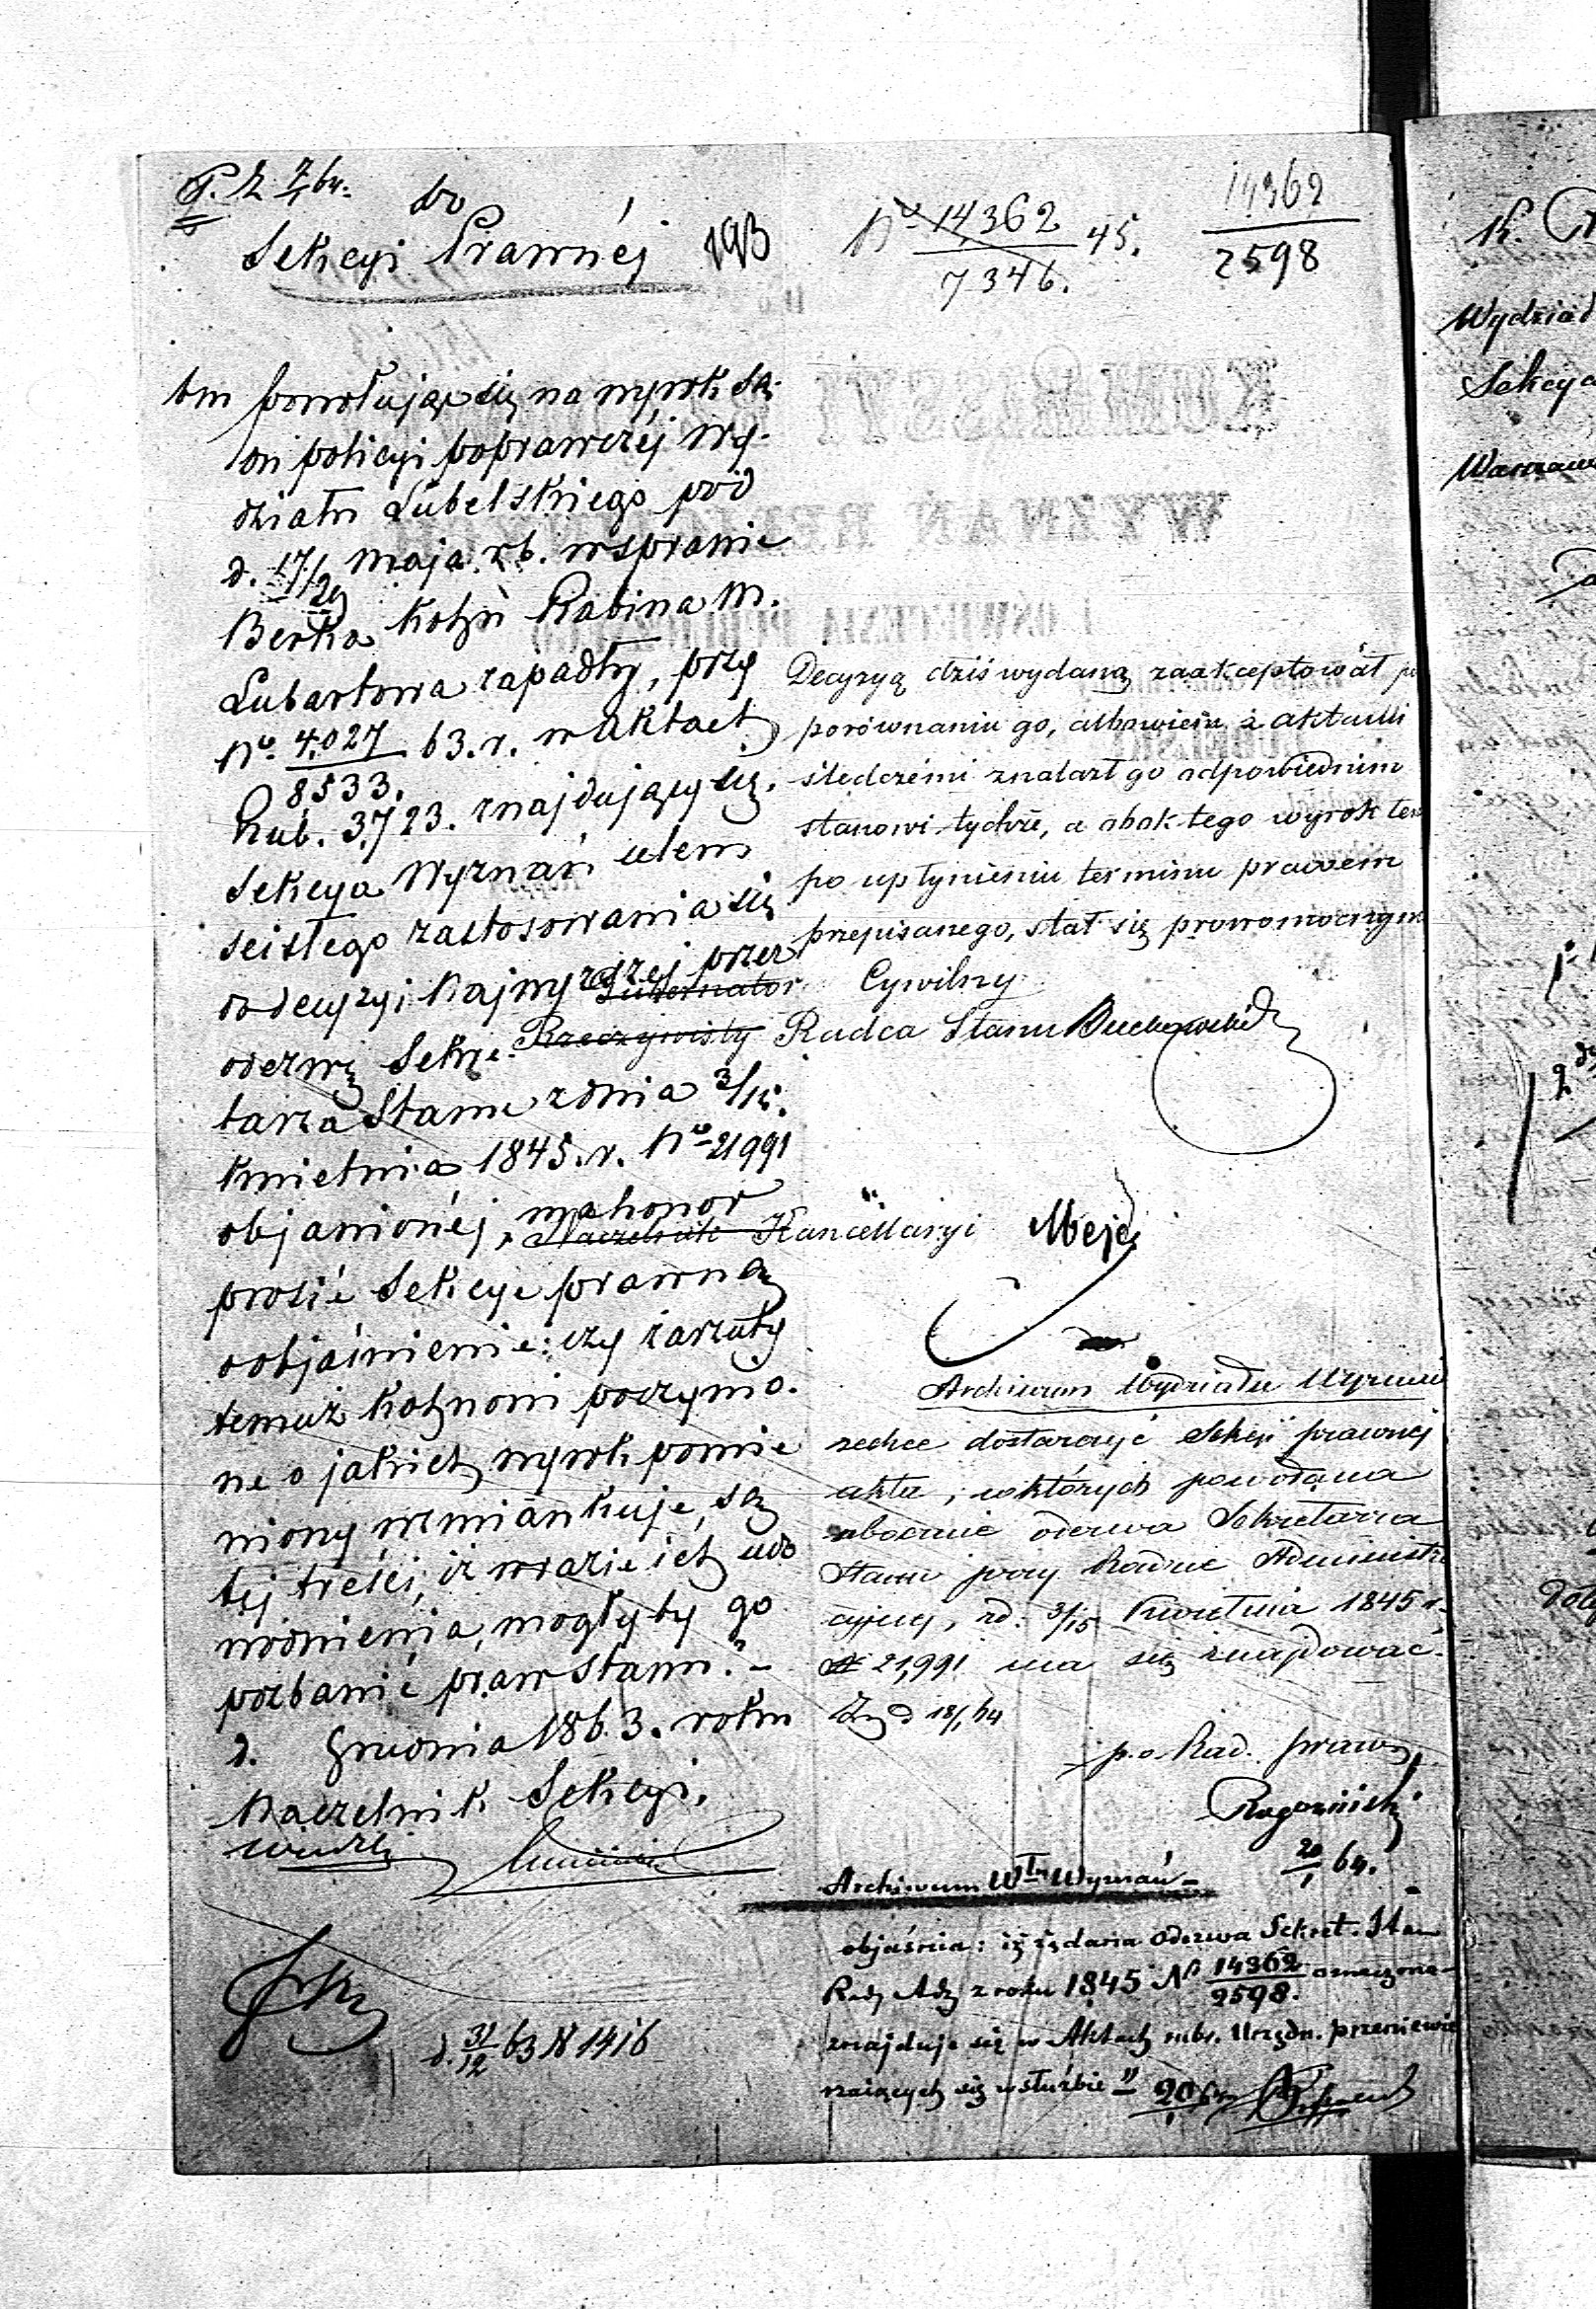 P. Z 7/1 64.
do
Sekcyi Prawnéj 193
№ 14,362 / 7346. 45.
14362 / 2598
powołując się na wyrok Są-
du policyi poprawczéj Wy-
działu Lubelskiego pod
d. 17/29 maja r.b. w sprawie
Berka Kohn Rabina m.
Lubartowa zapadły, przy
№ 4,027 / 8533. 63. r. w aktach
Rub. 3723. znajdujący się.
Sekcya Wyznań celem
ścisłego zastosowania się
do decyzyi Najwyższej przez
odezwę Sekre-
tarza Stanu z dnia 3/15.
Kwietnia 1845. r. № 21991
objawionéj, ma honor
prosić Sekcye prawną
o objaśnienie: czy zarzuty
temuż Kohnowi poczynio-
ne o jakich wyrok pomie
niony wzmiankuje, są
téj treści, iż w razie ich udo
wodnienia, mogłyby go
pozbawić praw stanu? –
d. Grudnia 1863. roku
Naczelnik Sekcyi.
d. 31/12 63 N 1416
Decyzyą dziś wydaną zaakceptował po
porównaniu go, albowiem z aktami
śledczémi znalazł go odpowiednim
stanowi tychże, a obok tego wyrok ten
po upłynieniu terminu prawem
przepisanego, stał się prawomocnym
Gubernator Cywilny
Rzeczywisty Radca Stanu
Naczelnik Kancellaryi
Archiwum Wydziału Wyznań
zechce dostarczyć Sekcji prawnej
akta, w których powołana
obocznie odezwa Sekretarza
Stanu przy Radzie Administra
cyjnej, z d. 3/15 Kwietnia 1845 r.
N 21,991 ma się znajdować.
d 18/1 64
p.o. Rad. prawn
20/1 64.
Archiwum Włu Wyznań –
objaśnia: iż żądana odezwa Sekret. Stanu
Rady Adm z roku 1845 № 14362 / 2598. oznaczona
znajduje się w Aktach rubr. Urzędn. przeniewie
rzających się w służbie"
20/1